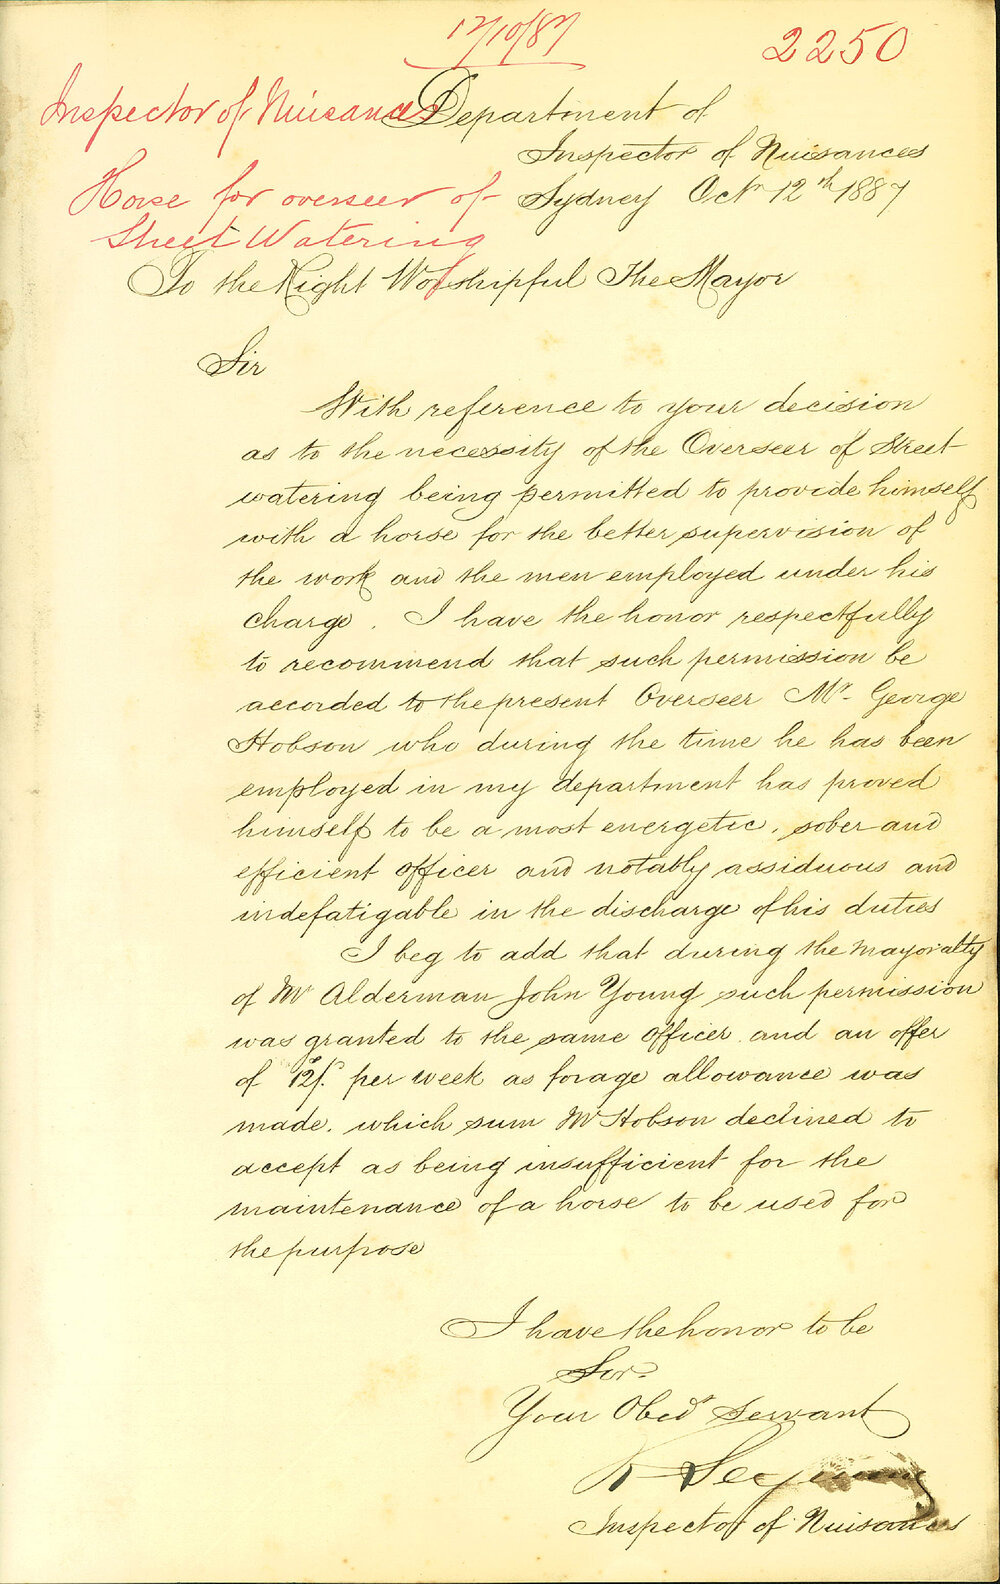 12/10/87
2250
Inspector of Nuisances
Department of
Inspector of Nuisances
Horse for overseer of
Street Watering
Sydney Octr 12th 1887
To the Right Worshipful The Mayor
Sir
With reference to your decision
as to the necessity of the Overseer of Street
watering being permitted to provide himself
with a horse for the better supervision of
the work and the men employed under his
charge. I have the honor respectfully
to recommend that such permission be
accorded to the present Overseer Mr. George
Hobson who during the time he has been
employed in my department has proved
himself to be a most energetic, sober and
efficient officer and notably assiduous and
indefatigable in the discharge of his duties
I beg to add that during the mayoralty
of Mr Alderman John Young such permission
was granted to the same officer and an offer
of 12/. per week as forage allowance was
made. which sum Mr Hobson declined to
accept as being insufficient for the
maintenance of a horse to be used for
the purpose
I have the honor to be
Sir
Your Obedt Servant
R Seymour
Inspector of Nuisances